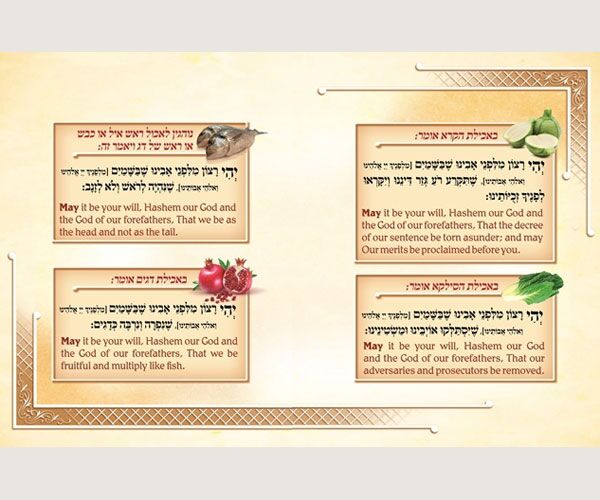 באכילת הקרא אומר:
יְהִי רָצוֹן מִלִּפְנֵי אָבִינוּ שֶׁבַּשָּׁמַיִם [מלפניך יי אלהינו
ואלהי אבותינו], שֶׁתִּקְרַע רֹעַ גְּזַר דִּינֵנוּ וְיִקָּרְאוּ
לְפָנֶיךָ זְכֻיּוֹתֵינוּ:
May it be your will, Hashem our God and
the God of our forefathers, That the decree
of our sentence be torn asunder; and may
Our merits be proclaimed before you.
באכילת הסילקא אומר:
יְהִי רָצוֹן מִלִּפְנֵי אָבִינוּ שֶׁבַּשָּׁמַיִם [מלפניך יי אלהינו
ואלהי אבותינו], שֶׁיִּסְתַּלְּקוּ אוֹיְבֵינוּ וּמַשְׂטִינֵינוּ:
May it be your will, Hashem our God
and the God of our forefathers, That our
adversaries and prosecutors be removed.
נוהגין לאכול ראש איל או כבש
או ראש של דג ויאמר זה:
יְהִי רָצוֹן מִלִּפְנֵי אָבִינוּ שֶׁבַּשָּׁמַיִם [מלפניך יי אלהינו
ואלהי אבותינו], שֶׁנִּהְיֶה לְרֹאשׁ וְלֹא לְזָנָב:
May it be your will, Hashem our God and
the God of our forefathers, That we be as
the head and not as the tail.
באכילת דגים אומר:
יְהִי רָצוֹן מִלִּפְנֵי אָבִינוּ שֶׁבַּשָּׁמַיִם [מלפניך יי אלהינו
ואלהי אבותינו], שֶׁנִּפְרֶה וְנִרְבֶּה כְּדָגִים:
May it be your will, Hashem our God and
the God of our forefathers, That we be
fruitful and multiply like fish.